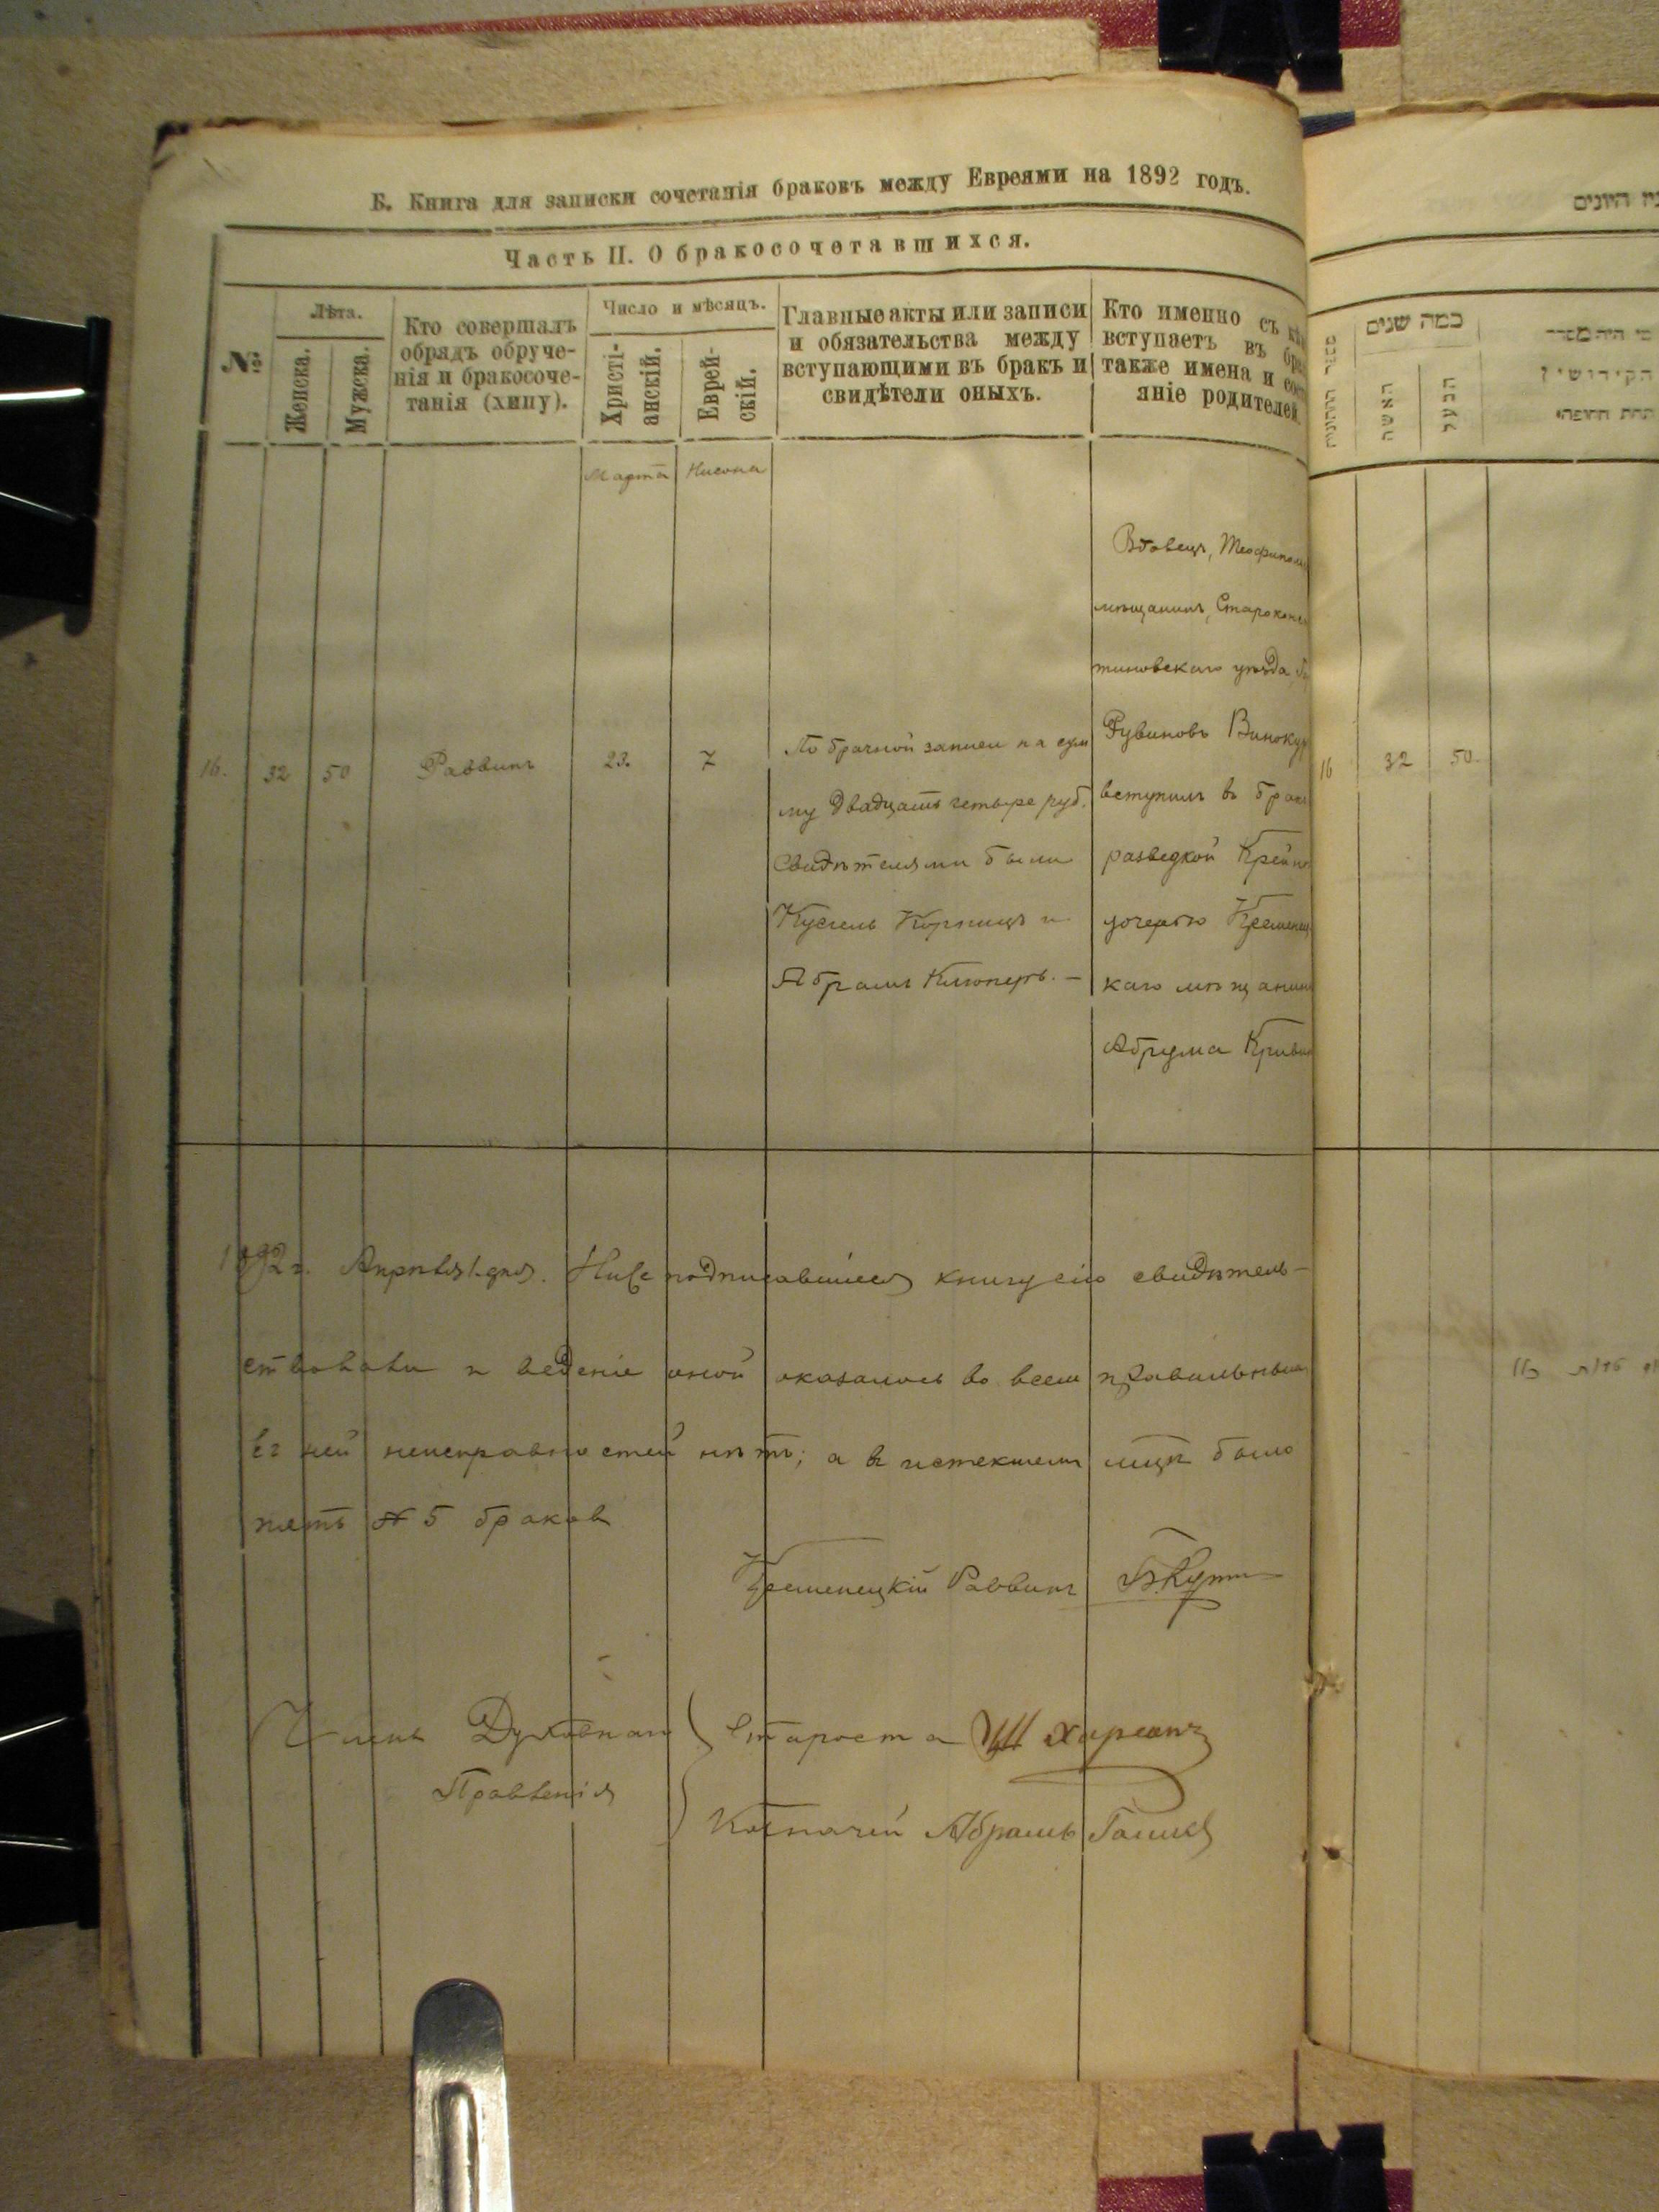 Б. Книга для записки сочетанія браковъ между Евреями на 1892 годъ.
Часть II. О бракосочетавшихся.
№
Лѣта.
Женска.
Мужска.
Кто совершалъ
обрядъ обруче-
нія и бракосоче-
танія (хипу).
Число и мѣсяцъ.
Христі-
анскій.
Еврей-
скій.
Главные акты или записи
и обязательства между
вступающими въ бракъ и
свидѣтели оныхъ.
Кто именно съ
вступаетъ въ
также имена и
яніе родителей.
Марта
Нисона
16.
32
50
Раввинъ
23.
7
По брачной записи на сум
му двадцать четыре руб.
Свидѣтелями были
Кусель Корницъ и
Абрамъ Клюперъ. —
Вдовецъ,
мѣщанинъ, Староконс
тиновскаго уѣзда
Рувиновъ Винокур
вступилъ въ бракъ
разведкой Крейн
дочерью Кременец
каго мѣщанина
Абрума
1892 г. Апрѣля 1 дня. Нижеподписавшіеся книгу сію свидѣтель-
ствовали и веденіе оной оказалось во всемъ правильнымъ
въ ней неисправностей нѣтъ; а въ истекшемъ мцѣ было
пять № 5 браковъ
Кременецкій Раввинъ
Члены Духовнаго
Правленія
Староста
Казначей Абрамъ
היונים
כמה שנים
האשה
הבעל
מי היה מסדר
הקידושין
תחת חופה
16
32
50.